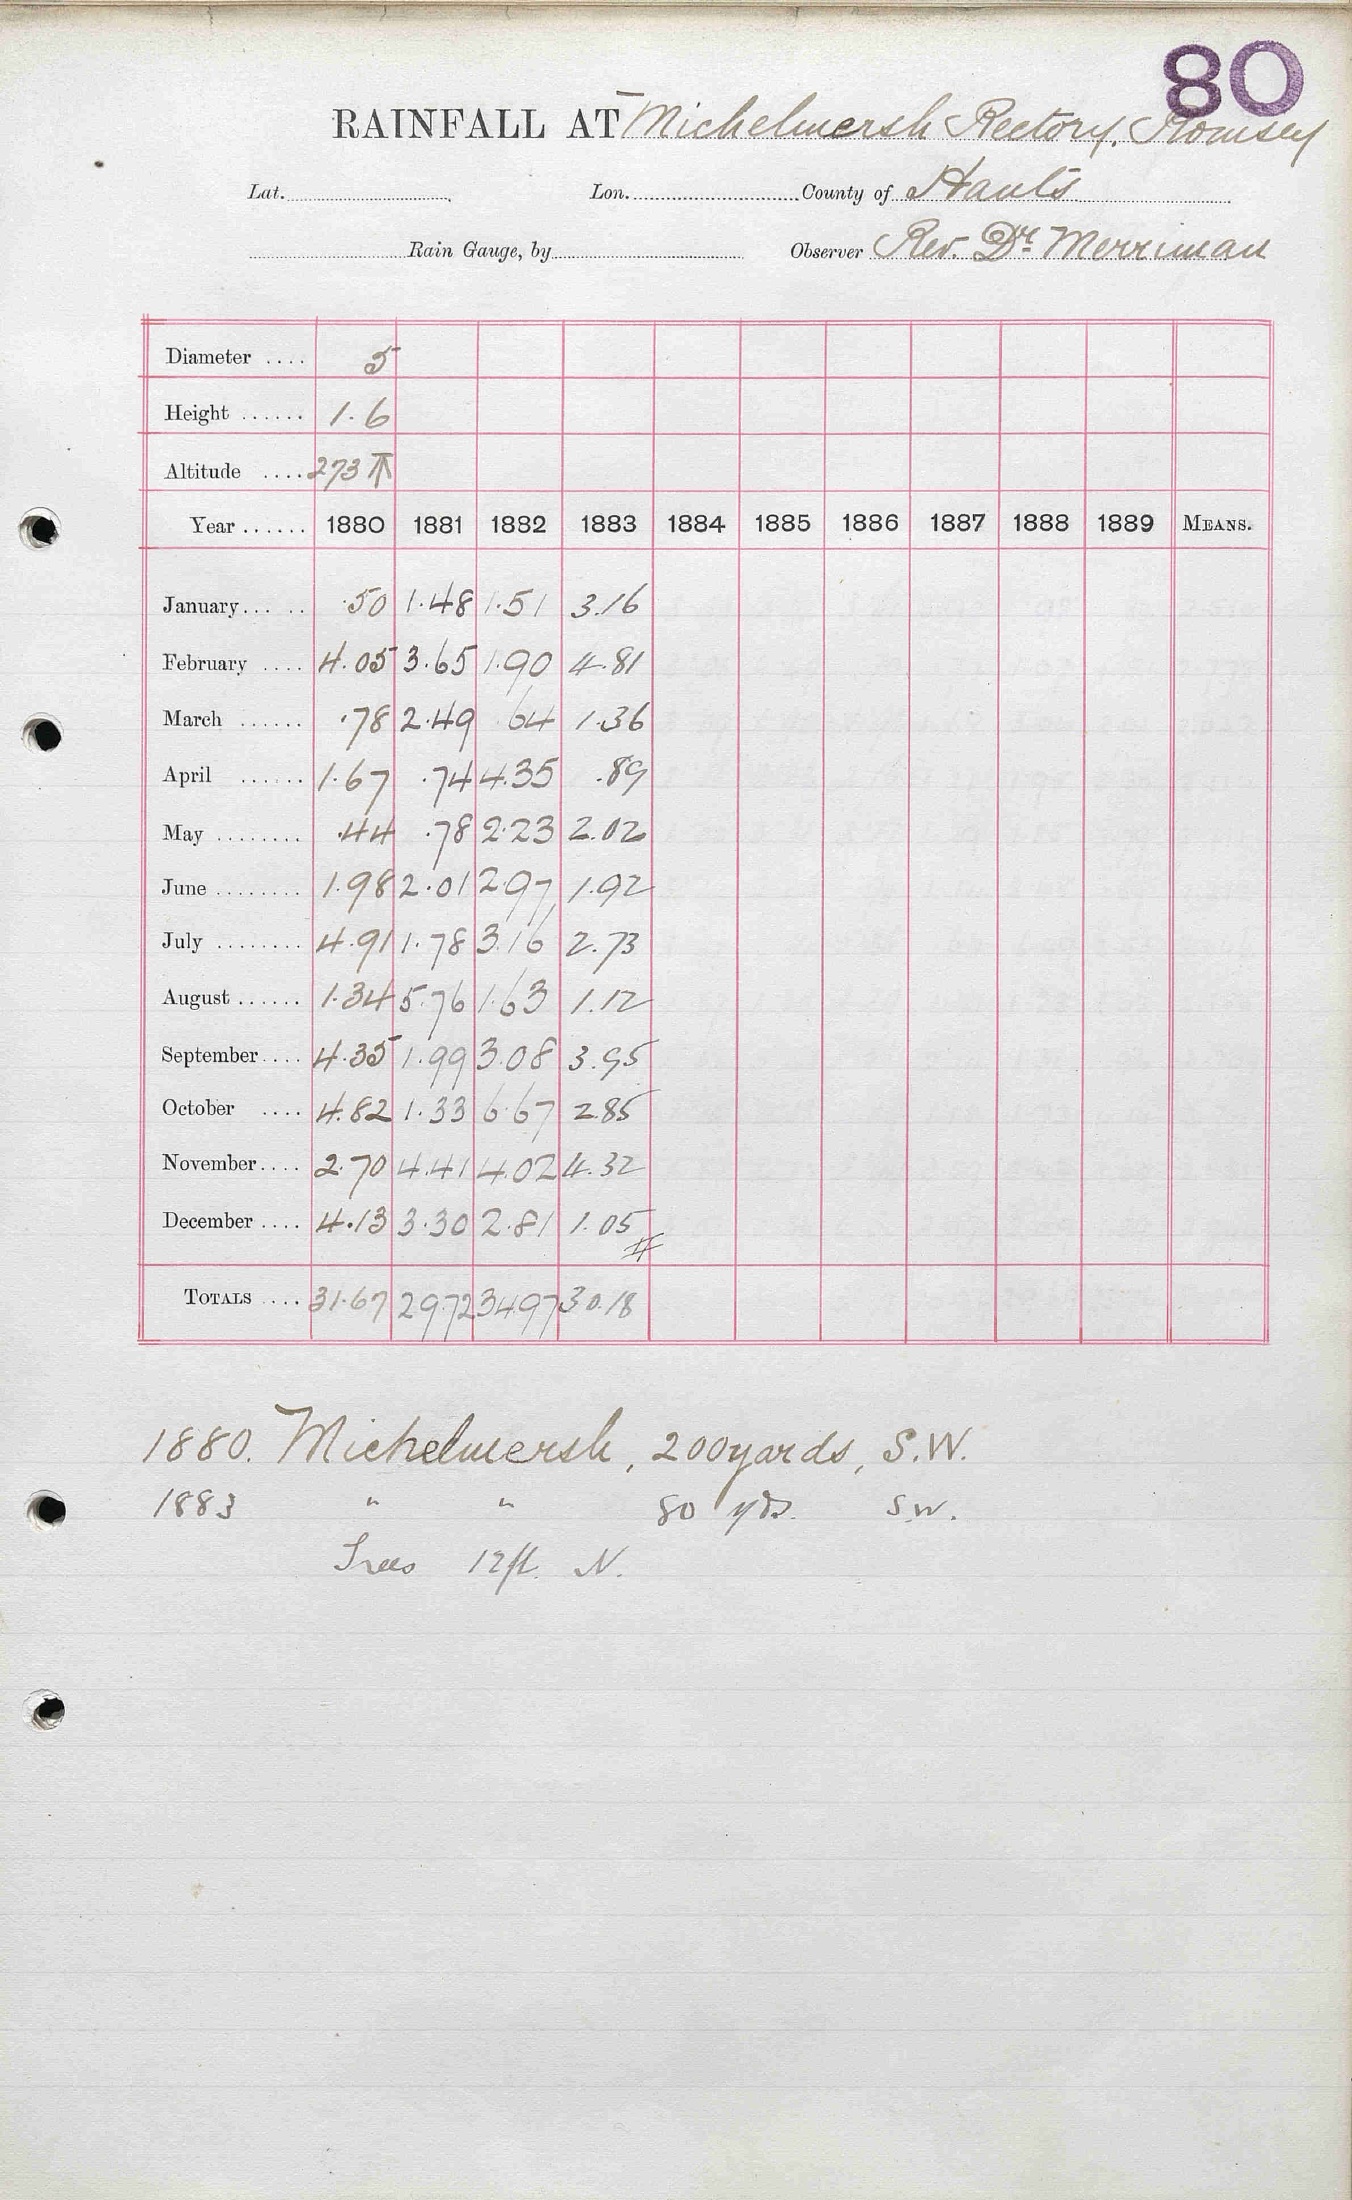 80
RAINFALL AT Michelmersh Rectory, Romsey
Lat. Lon. County of Hants
Rain Gauge, by Observer Rev. Dr. Merriman
Diameter .... 5
Height ...... 1.6
Altitude .... 273
Year ...... 1880 1881 1882 1883 1884 1885 1886 1887 1888 1889 MEANS.
January... .. .50 1.48 1.51 3.16
February .... 4.05 3.65 1.90 4.81
March ...... .78 2.49 .64 1.36
April ...... 1.67 .74 4.35 .89
May ........ .44 .78 2.23 2.02
June ........ 1.98 2.01 2.97 1.92
July ........ 4.91 1.78 3.16 2.73
August ...... 1.34 5.76 1.63 1.12
September .... 4.35 1.99 3.08 3.95
October .... 4.82 1.33 6.67 2.85
November .... 2.70 4.41 4.02 4.32
December .... 4.13 3.30 2.81 1.05
TOTALS .... 31.67 29.72 34.97 30.18
1880. Michelmersh, 200 yards, S.W.
1883 " " 80 yds. S.W.
Trees 12ft. N.